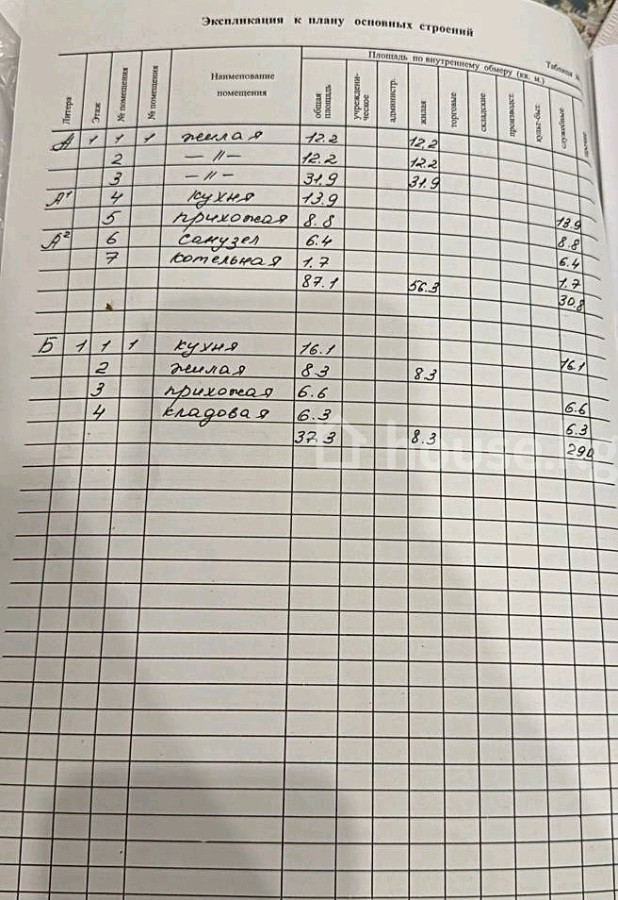 Экспликация к плану основных строений
Таблица №
Площадь по внутреннему обмеру (кв. м.)
Литера Этаж № помещения № помещения Наименование помещения общая площадь учреждени-ческое администр. жилая торговые складские производст. культ-быт. служебные прочие
А 1 1 1 жилая 12.2 12.2
2 —〃— 12.2 12.2
3 —〃— 31.9 31.9
А¹ 4 кухня 13.9 13.9
5 прихожая 8.8 8.8
А² 6 санузел 6.4 6.4
7 котельная 1.7 1.7
87.1 56.3 30.8
Б 1 1 1 кухня 16.1 16.1
2 жилая 8.3 8.3
3 прихожая 6.6 6.6
4 кладовая 6.3 6.3
37.3 8.3 29.0
house.kg